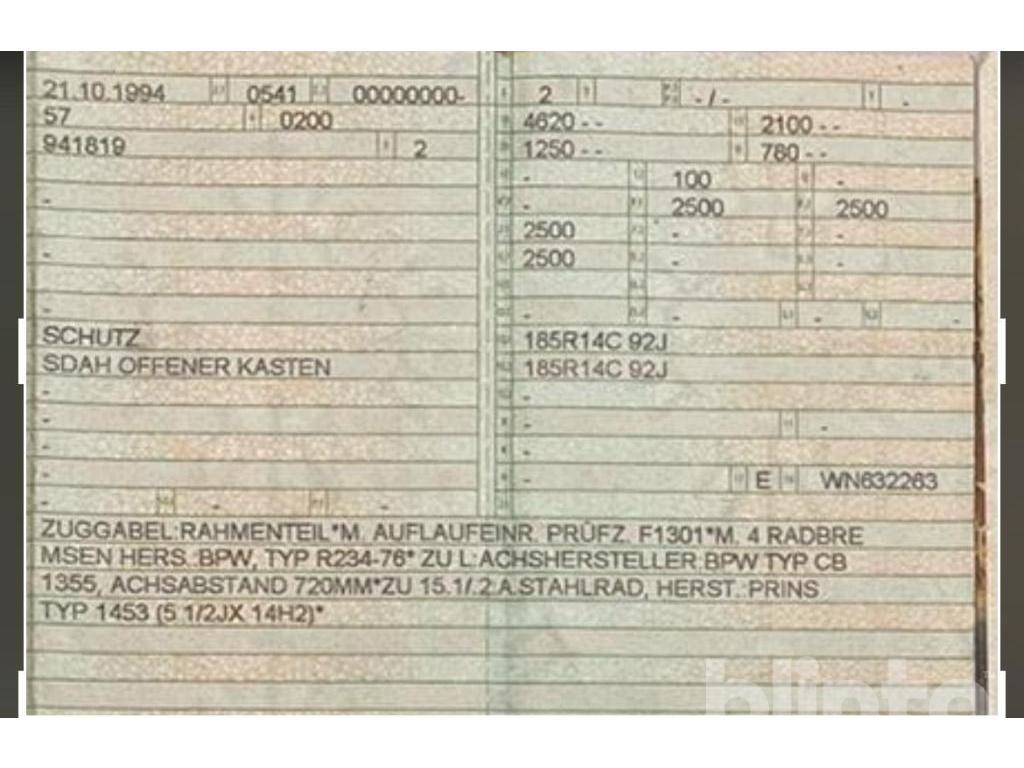 21.10.1994 0541 00000000-
57 0200
941819 2
-
-
-
SCHUTZ
SDAH OFFENER KASTEN
-
-
-
-
- -
2 -/- -
4620 - - 2100 - -
1250 - - 780 - -
- 100 -
- 2500 2500
2500 - -
2500 - -
- - - -
185R14C 92J
185R14C 92J
-
- -
-
- E WN632263
ZUGGABEL:RAHMENTEIL*M. AUFLAUFEINR. PRÜFZ. F1301*M. 4 RADBRE
MSEN HERS.:BPW, TYP R234-76* ZU L:ACHSHERSTELLER:BPW TYP CB
1355, ACHSABSTAND 720MM*ZU 15.1/.2:A.STAHLRAD, HERST.:PRINS
TYP 1453 (5 1/2JX 14H2)*